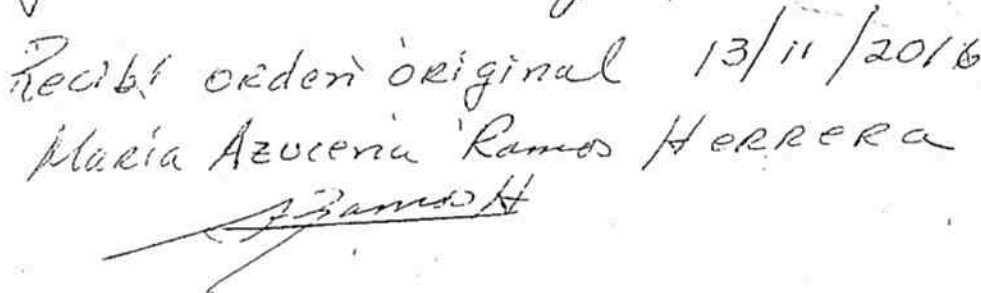 Recibí orden original 13/11/2016
María Azucena Ramos Herrera
ARamos H